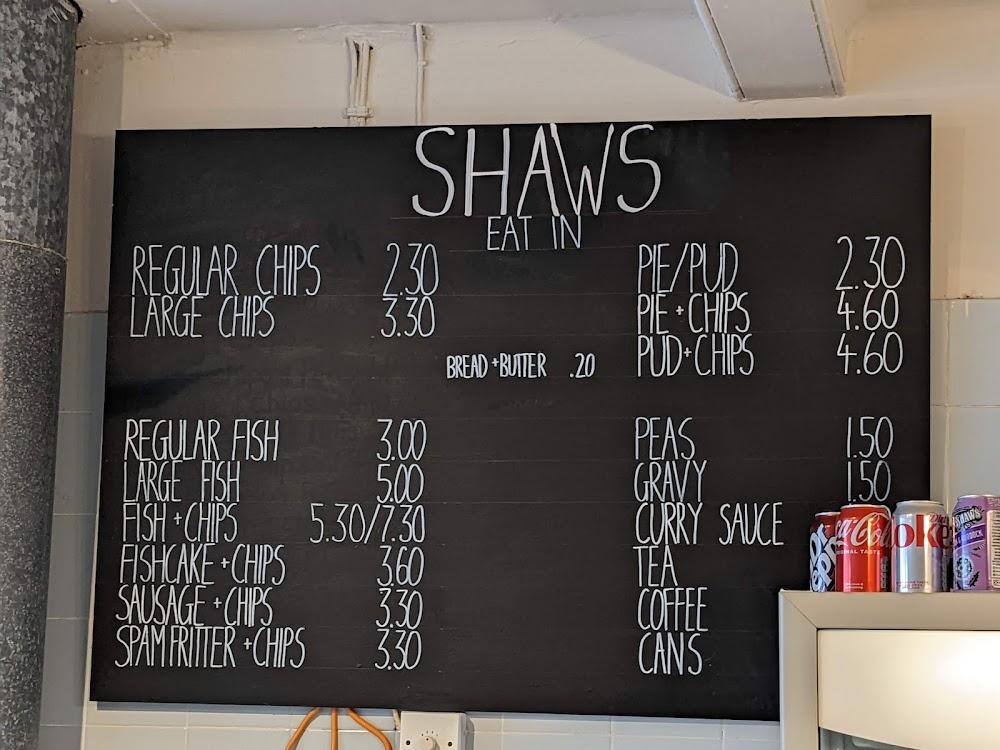 SHAWS
EAT IN
REGULAR CHIPS 2.30
LARGE CHIPS 3.30
PIE/PUD 2.30
PIE + CHIPS 4.60
PUD + CHIPS 4.60
BREAD + BUTTER .20
REGULAR FISH 3.00
LARGE FISH 5.00
FISH + CHIPS 5.30/7.30
FISHCAKE + CHIPS 3.60
SAUSAGE + CHIPS 3.30
SPAM FRITTER + CHIPS 3.30
PEAS 1.50
GRAVY 1.50
CURRY SAUCE
TEA
COFFEE
CANS